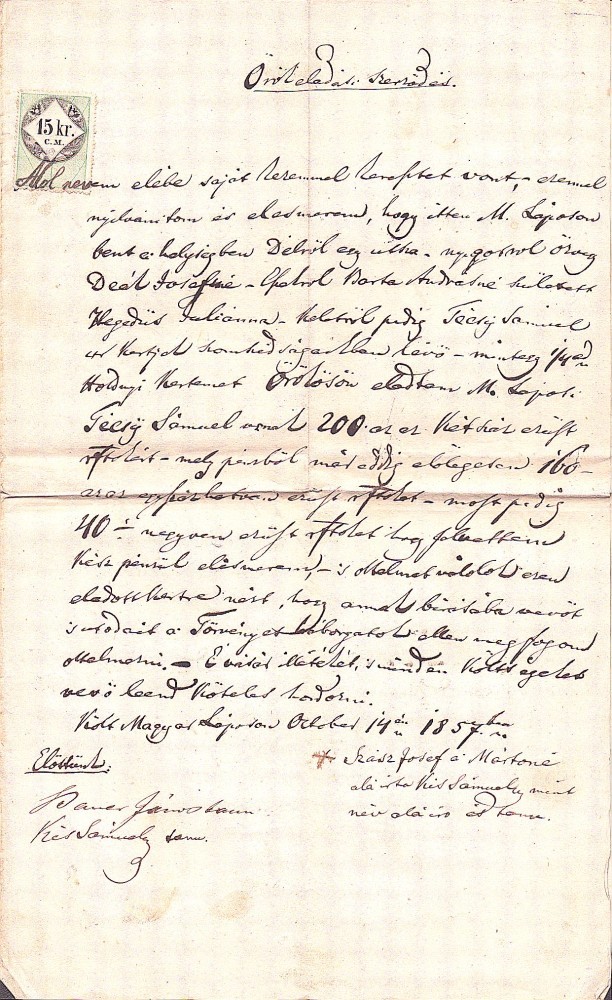 Örök eladási szerződés.
15 kr.
C.M.
Alól nevem elébe saját kezemmel keresztet vont, ezennel
nyilvánitom és elesmerem, hogy itten M. Láposon
bent a helységben Délről egy utka - nyugotrol özveg
Deák Josefné - Ésakrol Barta Andrásné született
Hegedüs Juliánna - Keletröl pedig Técsÿ Sámuel
ur Kertjek szomszédságaikban lévő - mintegy 1/4ed
Holdnyi Kertemet Örökösön eladtam M. Láposi
Técsÿ Sámuel urnak 200. az az Kétszáz ezüst
rftokért - mely pénzből már eddig előlegesen 160 -
az az egyszázhatvan ezüst rftokot - most pedig
40 - negyven ezüst rftokot hogy felvettem
kész pénzül elésmerem, - is oltalmat válolok ezen
eladott kertre nézt, hogy annak birásába vevőt
is utodait a Törvényes háborgatok ellen meg fogom
oltalmazni. - E vásár illetékét, is minden Költségeket
vevő leend Köteles hordozni.
Költ Magyar Láposon October 14én 1857
Előttünk:
+ Szász Josef a Mártoné
aláirta Kis Sámuel, mint
név aláiro és tanu.
Bauer János tanu
Kis Sámuel tanu.